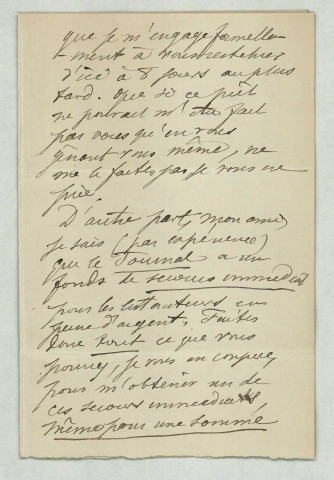 que je m'engage formelle-
-ment à vous restituer
d'ici à 8 jours au plus
tard. Que si ce prêt
ne pouvait m'être fait
par vous qu'en vous
gênant vous même, ne
me le faites pas je vous en
prie.
D'autre part, mon ami,
je sais (par expérience)
que le Journal a un
fonds de secours immédiat
pour les littérateurs en
peine d'argent. Faites
donc tout ce que vous
pouvez, je vous en conjure,
pour m'obtenir un de
ces secours immédiats,
même pour une somme